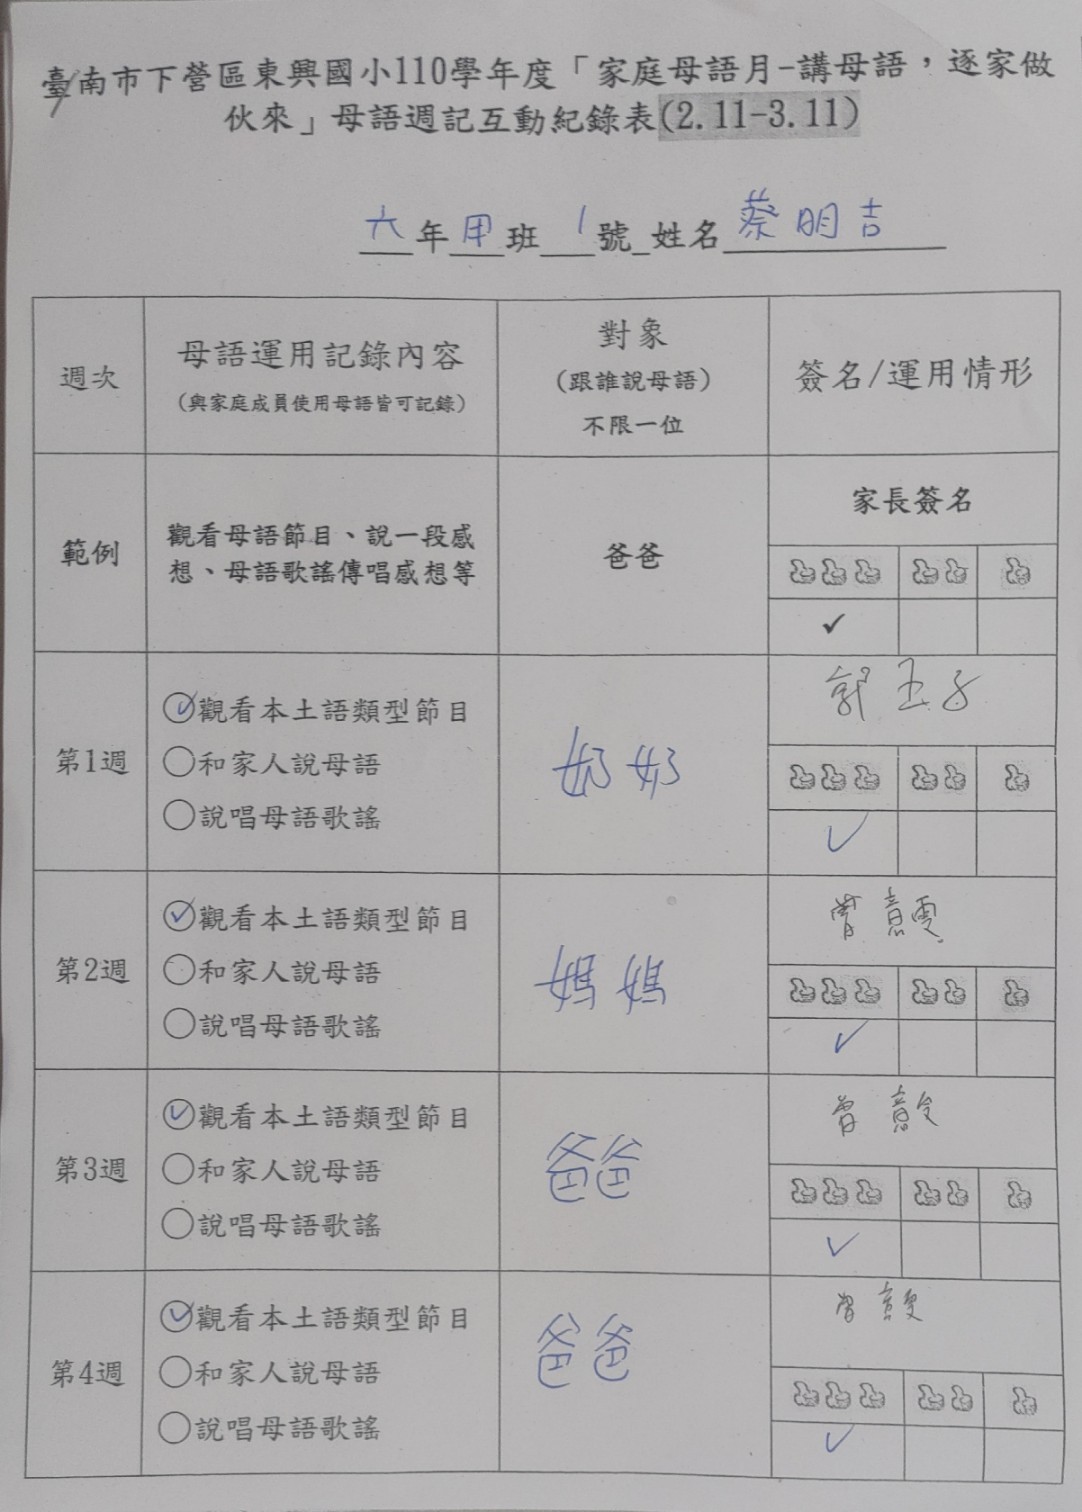 臺南市下營區東興國小110學年度「家庭母語月-講母語，逐家做
伙來」母語週記互動紀錄表(2.11-3.11)
六年甲班1號 姓名蔡明吉
週次
母語運用記錄內容
(與家庭成員使用母語皆可記錄)
對象
(跟誰說母語)
不限一位
簽名/運用情形
範例
觀看母語節目、說一段感
想、母語歌謠傳唱感想等
爸爸
家長簽名
✓
第1週
觀看本土語類型節目
和家人說母語
說唱母語歌謠
奶奶
郭玉子
✓
第2週
觀看本土語類型節目
和家人說母語
說唱母語歌謠
媽媽
曾意雯
✓
第3週
觀看本土語類型節目
和家人說母語
說唱母語歌謠
爸爸
✓
第4週
觀看本土語類型節目
和家人說母語
說唱母語歌謠
爸爸
✓